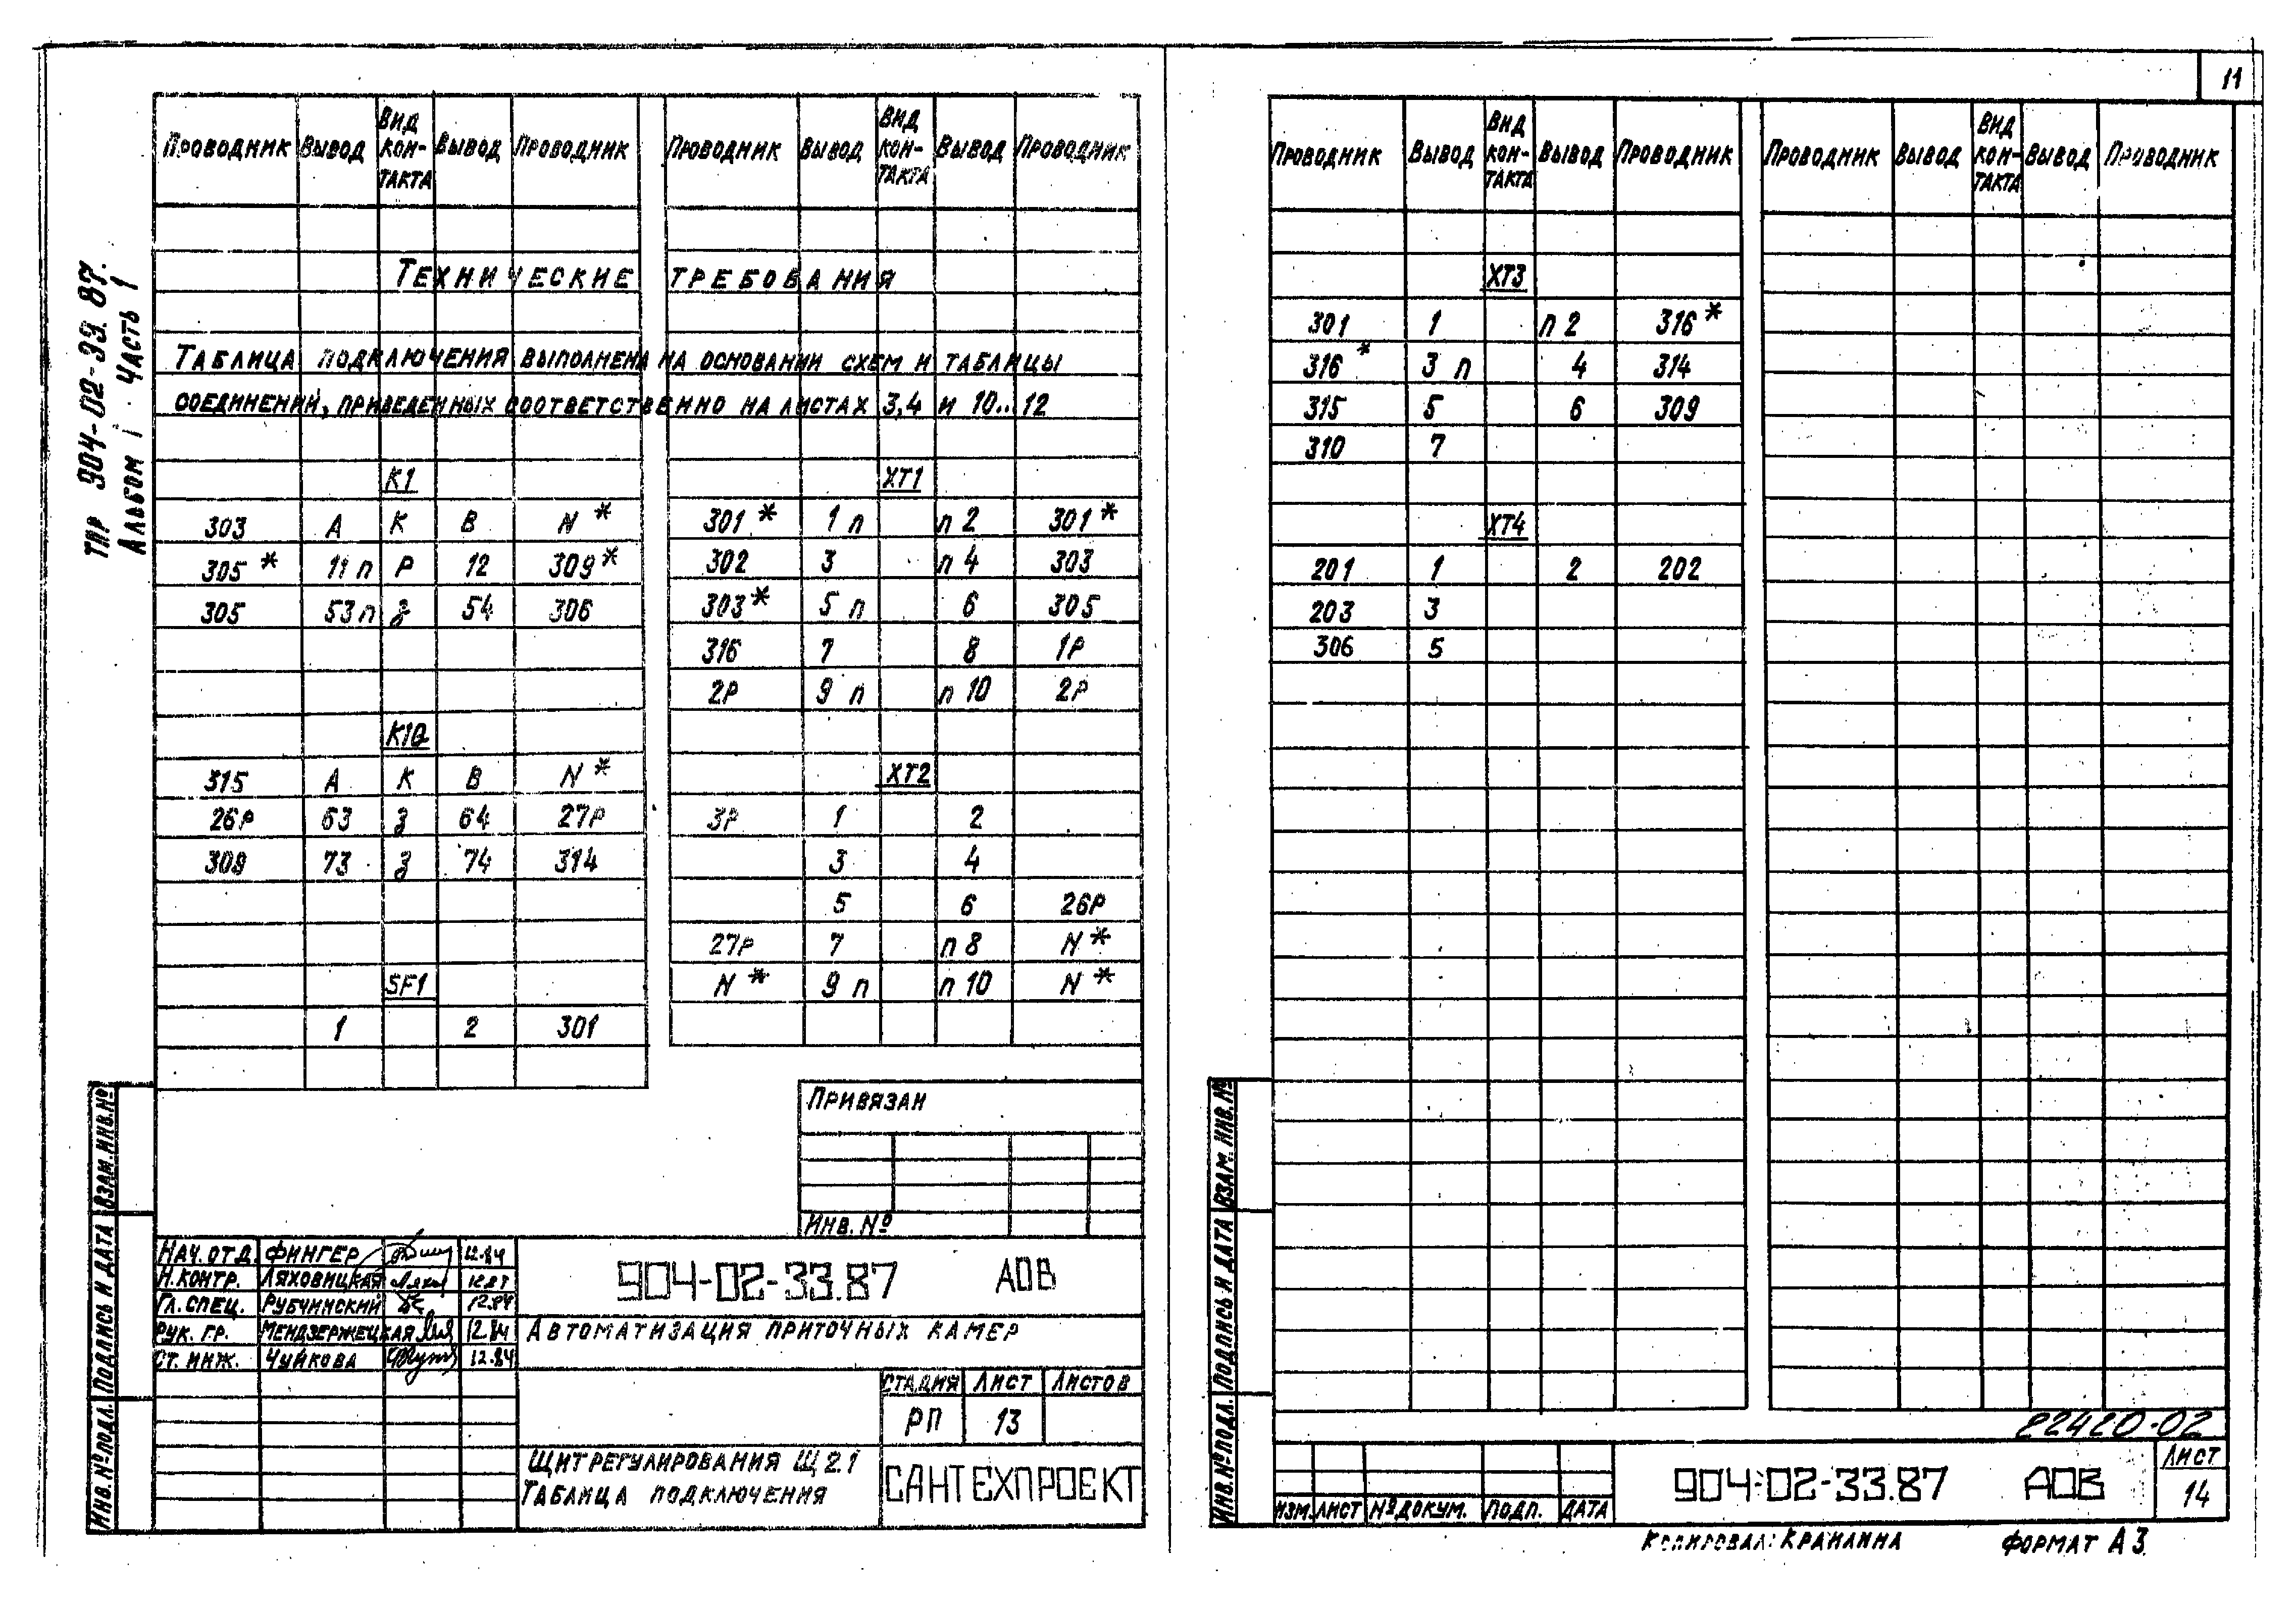 11
ТПР 904-02-33.87.
Альбом 1 Часть 1
Проводник Вывод Вид контакта Вывод Проводник Проводник Вывод Вид контакта Вывод Проводник
Технические требования
Таблица подключения выполнена на основании схем и таблицы
соединений, приведенных соответственно на листах 3,4 и 10...12
К1
303 А К В N*
305* 11 п Р 12 309*
305 53 п з 54 306
К1Q
315 А К В N*
26Р 63 з 64 27Р
309 73 з 74 314
SF1
1 2 301
ХТ1
301* 1 п п 2 301*
302 3 п 4 303
303* 5 п 6 305
316 7 8 1Р
2Р 9 п п 10 2Р
ХТ2
3Р 1 2
3 4
5 6 26Р
27Р 7 п 8 N*
N* 9 п п 10 N*
Привязан
Инв. №
Нач. отд. Фингер 12.84
Н. контр. Ляховицкая 12.87
Гл. спец. Рубчинский 12.84
Рук. гр. Мендзержецкая 12.84
Ст. инж. Чуйкова 12.84
904-02-33.87 АОВ
Автоматизация приточных камер
Стадия Лист Листов
РП 13
Щит регулирования Щ 2.1
Таблица подключения
САНТЕХПРОЕКТ
Инв. № подл. Подпись и дата Взам. инв. №
Проводник Вывод Вид контакта Вывод Проводник Проводник Вывод Вид контакта Вывод Проводник
ХТ3
301 1 п 2 316*
316* 3 п 4 314
315 5 6 309
310 7
ХТ4
201 1 2 202
203 3
306 5
Инв. № подл. Подпись и дата Взам. инв. №
22420-02
Изм. Лист № докум. Подп. Дата
904-02-33.87 АОВ
Лист
14
Копировал: Крайлина Формат А3